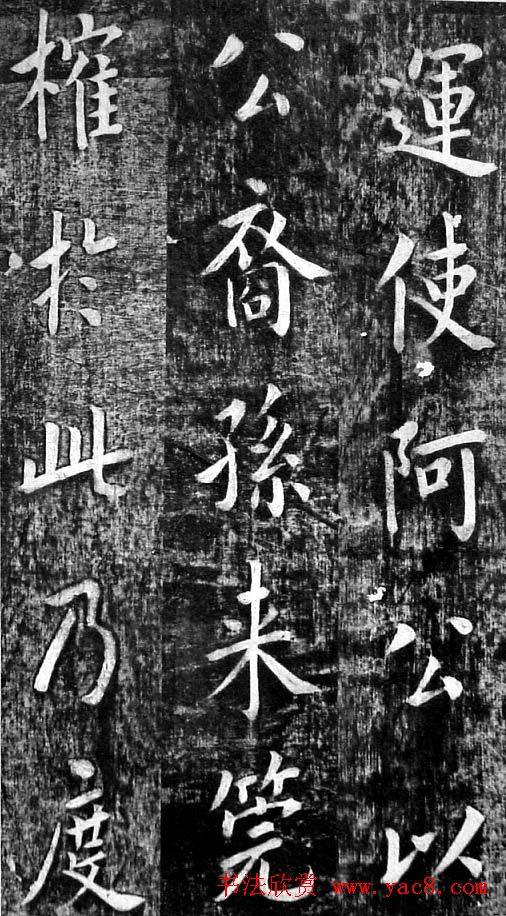 運使阿公以
公裔孫来筦
榷於此乃度
书法欣赏 www.yac8.com